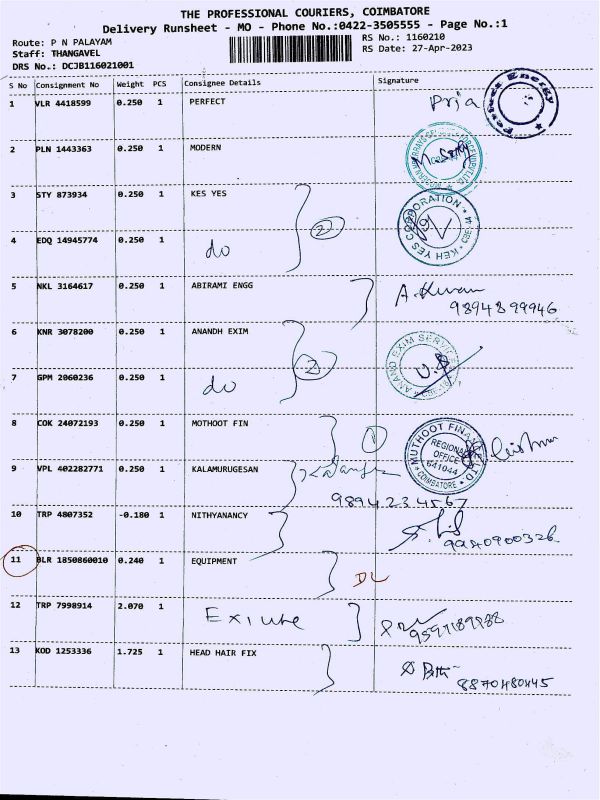 THE PROFESSIONAL COURIERS, COIMBATORE
Delivery Runsheet - MO - Phone No.:0422-3505555 - Page No.:1
Route: P N PALAYAM
Staff: THANGAVEL
DRS No.: DCJB116021001
RS No.: 1160210
RS Date: 27-Apr-2023
S No Consignment No Weight PCS Consignee Details Signature
1 VLR 4418599 0.250 1 PERFECT Pria
Perfect Energy
2 PLN 1443363 0.250 1 MODERN
3 STY 873934 0.250 1 KES YES 2
KEH YES CORPORATION
4 EDQ 14945774 0.250 1 do
5 NKL 3164617 0.250 1 ABIRAMI ENGG
9894899946
6 KNR 3078200 0.250 1 ANANDH EXIM 2
ANAND EXIM SERVICES
7 GPM 2060236 0.250 1 do
8 COK 24072193 0.250 1 MOTHOOT FIN 1
MUTHOOT FINANCE LTD REGIONAL OFFICE 641044 COIMBATORE
9 VPL 402282771 0.250 1 KALAMURUGESAN
9894234567
10 TRP 4807352 -0.180 1 NITHYANANCY
9940900326
11 BLR 1850860010 0.240 1 EQUIPMENT DL
12 TRP 7998914 2.070 1
13 KOD 1253336 1.725 1 HEAD HAIR FIX
8870480445